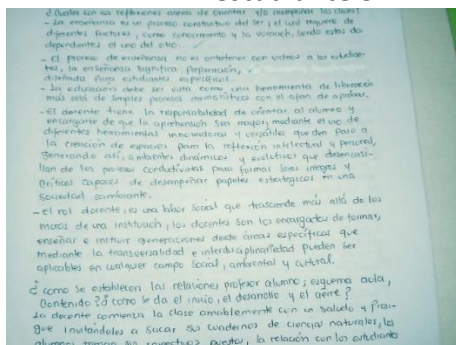 ¿Cuales son las reflexiones acerca de orientar y/o acompañar las clases?
- La enseñanza es un proceso constructivo del ser, el cual requiere de
diferentes factores, como conocimiento y la vocación, siendo estos do
dependientes el uno del otro.
- El proceso de enseñanza no es entretener con videos a los estudian-
tes, la enseñanza significa preparación,
diseñada para estudiantes específicos.
- La educación debe ser vista como una herramienta de liberación
más allá de simples procesos memorísticos con el afan de aprobar.
- El docente tiene la responsabilidad de orientar al alumno y
encargarse de que la aprehensión sea mayor, mediante el uso de
diferentes herramientas innovadoras y versátiles que den paso a
la creación de espacios para la reflexión intelectual y personal,
generando así, ambientes dinámicos y evolutivos que desencasi-
llan de los procesos conductivistas para formar seres íntegros y
críticos capaces de desempeñar papeles estratégicos en una
sociedad cambiante.
- el rol docente, es una labor social que trasciende más allá de los
muros de una institución, los docentes son los encargados de formar,
enseñar e instruir generaciones desde áreas específicas que
mediante la transversalidad e interdisciplinariedad pueden ser
aplicables en cualquier campo social, ambiental y cultural.
¿como se establecen las relaciones profesor alumno; esquema aula,
contenido? ¿como le da el inicio, el desarrollo y el cierre?
La docente comienza la clase amablemente con un saludo y prosi-
gue invitandoles a sacar sus cuadernos de ciencias naturales, los
alumnos toman sus respectivos puestos, la relación con los estudiante